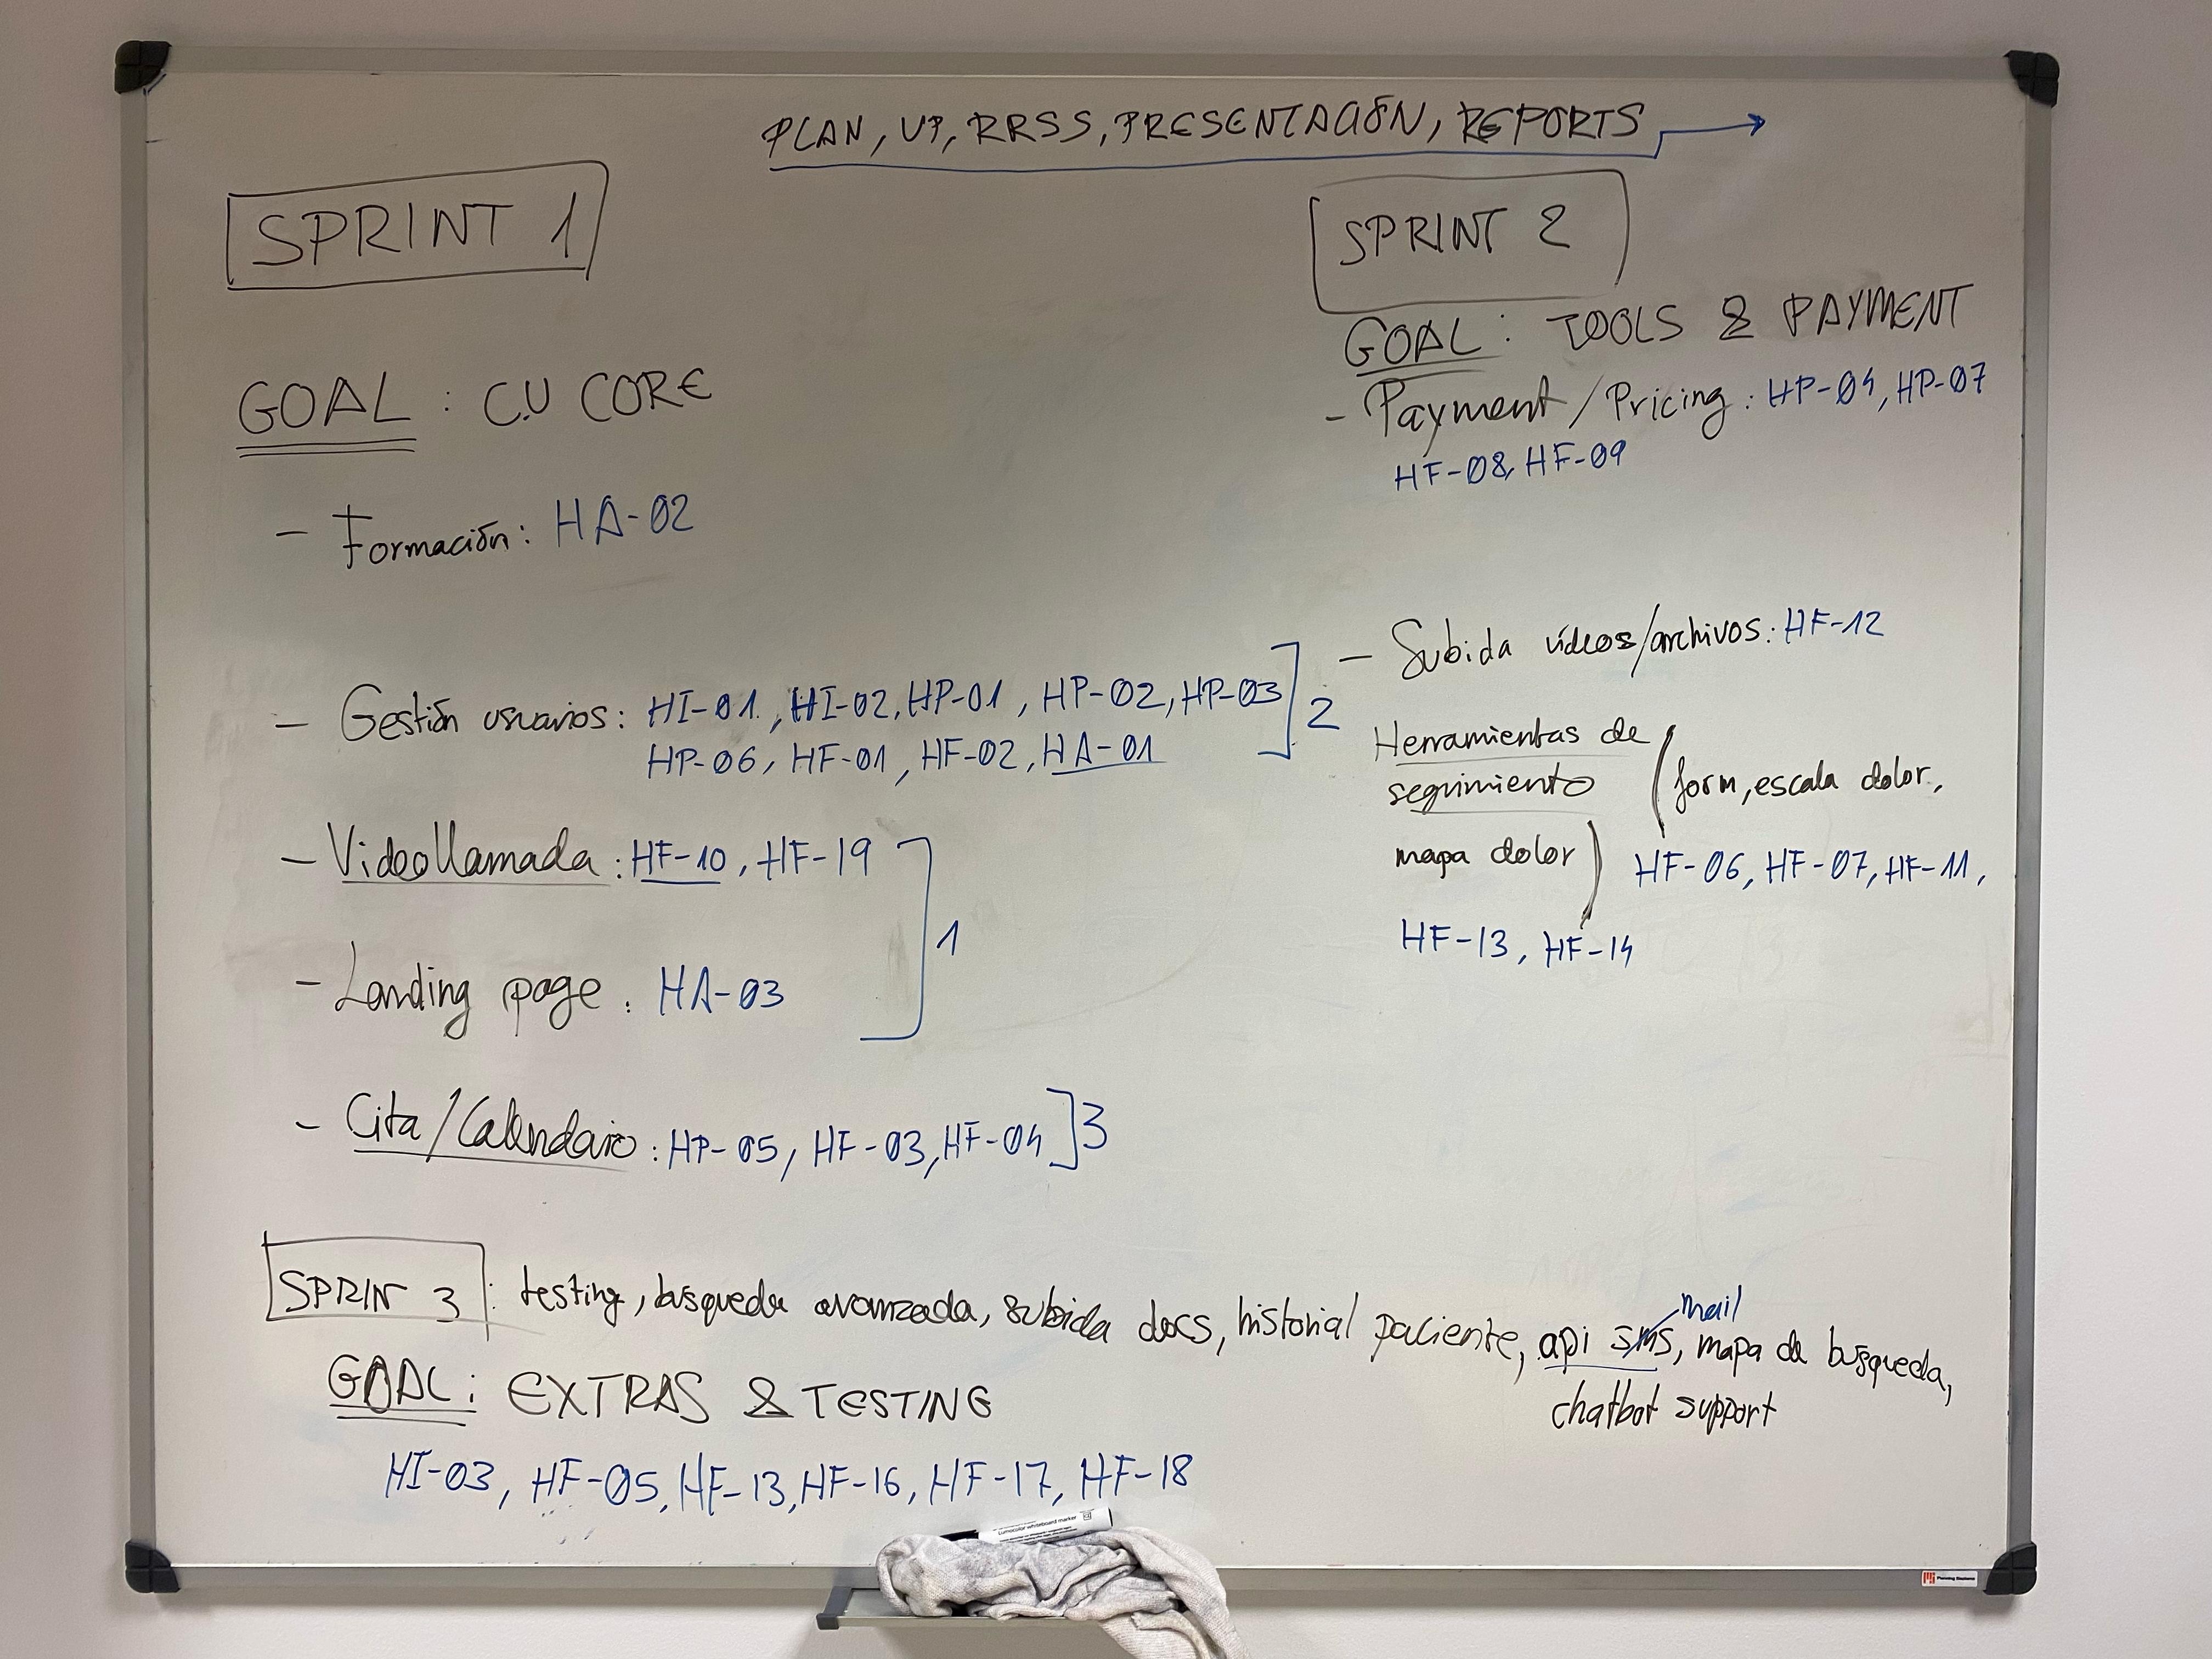 PLAN, UP, RRSS, PRESENTACIÓN, REPORTS
SPRINT 1
GOAL : C.U CORE
- Formación: HA-02
- Gestión usuarios: HI-01, HI-02, HP-01, HP-02, HP-03
HP-06, HF-01, HF-02, HA-01
2
- Videollamada: HF-10, HF-19
1
- Landing page: HA-03
- Cita/Calendario: HP-05, HF-03, HF-04
3
SPRINT 2
GOAL: TOOLS & PAYMENT
- Payment/Pricing: HP-04, HP-07
HF-08, HF-09
- Subida vídeos/archivos: HF-12
Herramientas de
seguimiento (form, escala dolor,
mapa dolor) HF-06, HF-07, HF-11,
HF-13, HF-14
SPRIN 3: testing, búsqueda avanzada, subida docs, historial paciente, api sms, mapa de búsqueda,
mail
chatbot support
GOAL: EXTRAS & TESTING
HI-03, HF-05, HF-13, HF-16, HF-17, HF-18
Lumocolor whiteboard marker